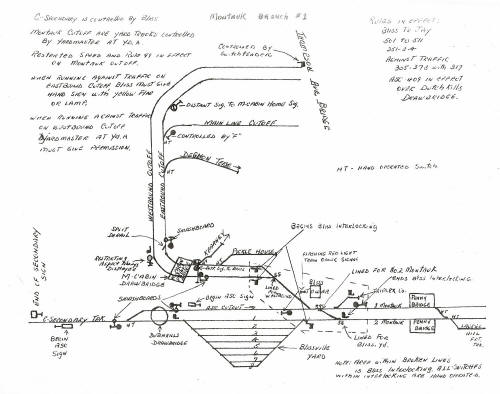 C-Secondary is controlled by Bliss
Montauk Branch #1
Montauk Cutoff are yard tracks controlled
by Yardmaster at Yd. A
Restricted Speed and Rule 97 in effect
on Montauk Cutoff.
When running against traffic on
Eastbound Cutoff Bliss must give
hand sign with yellow flag
or lamp.
When running against traffic
on Westbound Cutoff
Yardmaster at Yd. A
must give permission.
Rules in effect:
Bliss to Jay
501 to 511
251-254
Against traffic
305-373 with 317
ASC not in effect
over Dutch Kills
Drawbridge.
Controlled by
Switchtender
Thompson Ave Bridge
Distant Sig. to M-Cabin Home Sig.
Main Line Cutoff
Controlled by "F"
Degnon Term.
HT - Hand Operated Switch
Westbound Cutoff
Eastbound Cutoff
Split
Derail
Smashboard
Restricting
Aspect Always
Displayed
M-Cabin
Drawbridge
Pickle House
Begins Bliss Interlocking
Flashing red light
train order signal
Bliss
Lined for No. 2 Montauk
Ends Bliss Interlocking.
End of Secondary
Sign
C-Secondary Trk.
Begin
ASC
Sign
Smashboards
Dutch Kills
Drawbridge
Begin ASC Sign
ASC Cutout
1
2
3
4
5
6
7
Blissville
Yard
Lined for
Bliss. Yd.
1 Montauk
2 Montauk
Penny
Bridge
Penny
Bridge
Laurel
Hill
Note: Area within broken lines
is Bliss Interlocking. All switches
within interlocking are hand operated.